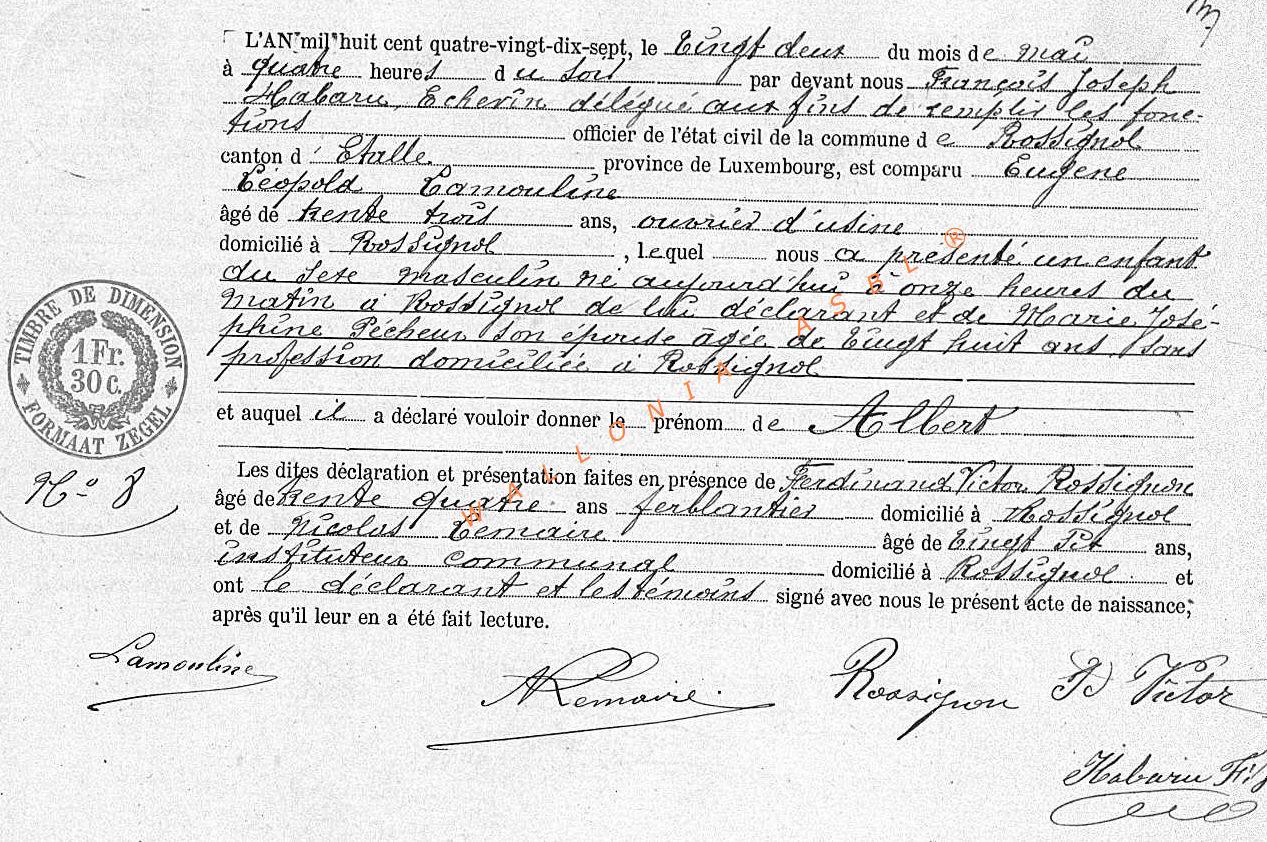 L'AN mil huit cent quatre-vingt-dix-sept, le Vingt deux du mois de mai
à quatre heures du soir par devant nous François Joseph
Habaru, Echevin délégué aux fins de remplir les fonc-
tions officier de l'état civil de la commune de Rossignol
canton d'Etalle province de Luxembourg, est comparu Eugène
Léopold Lamouline
âgé de trente trois ans, ouvrier d'usine
domicilié à Rossignol, lequel nous a présenté un enfant
du sexe masculin né aujourd'hui à onze heures du
matin à Rossignol de lui déclarant et de Marie José-
phine Pécheux son épouse âgée de Vingt huit ans sans
profession domiciliée à Rossignol
et auquel il a déclaré vouloir donner le prénom de Albert
Les dites déclaration et présentation faites en présence de Ferdinand Victor Rossignon
âgé de trente quatre ans ferblantier domicilié à Rossignol
et de Nicolas Lemaire âgé de Vingt six ans,
instituteur communal domicilié à Rossignol et
ont le déclarant et les témoins signé avec nous le présent acte de naissance,
après qu'il leur en a été fait lecture.
TIMBRE DE DIMENSION
1 Fr.
30 c.
FORMAAT ZEGEL
No 8
Lamouline
N Lemaire
Rossignon Fd Victor
Habaru Fils
WALLONIA ASBL ®